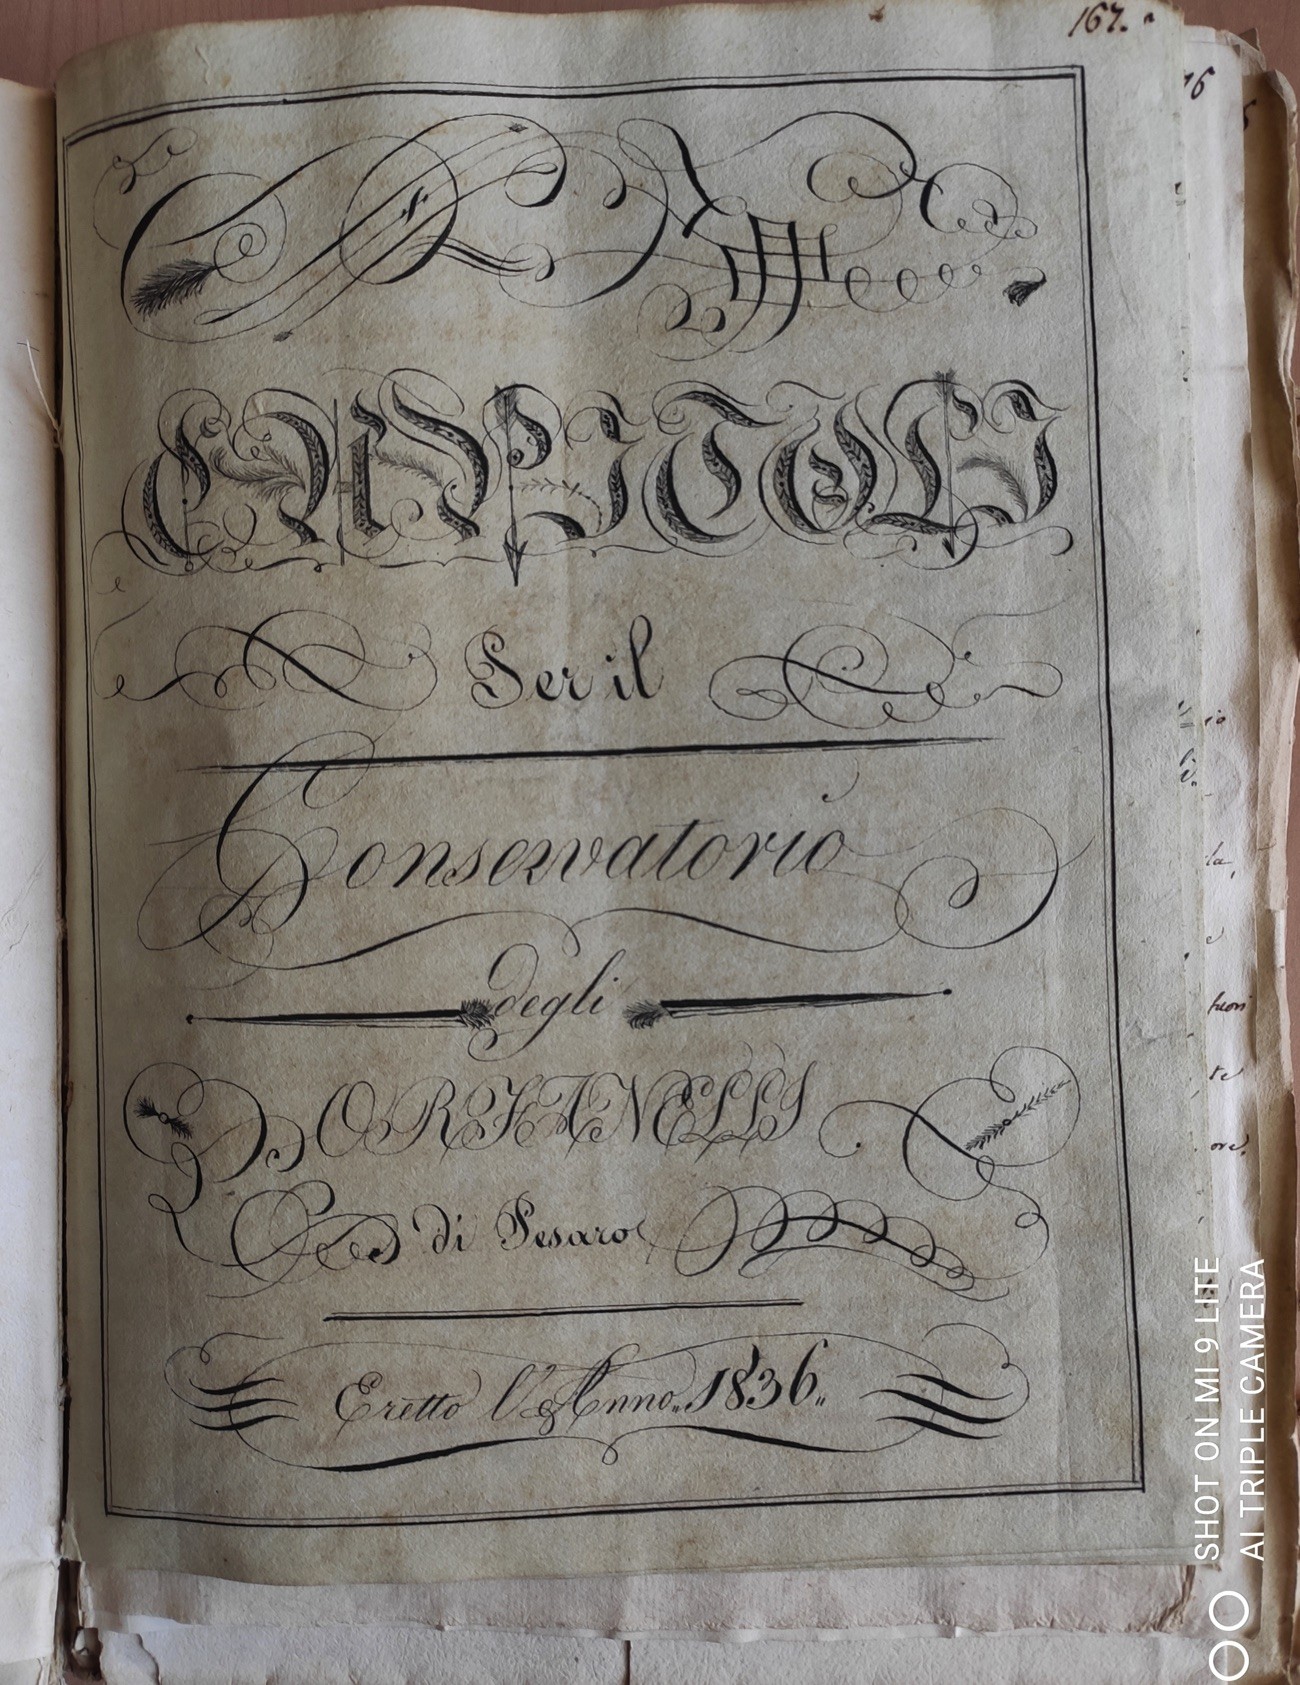 167.
16
CAPITOLI
Per il
Conservatorio
degli
ORFANELLI
di Pesaro
Eretto l'Anno,, 1836,,
la,
fuori
te
ore.
SHOT ON MI 9 LITE
AI TRIPLE CAMERA